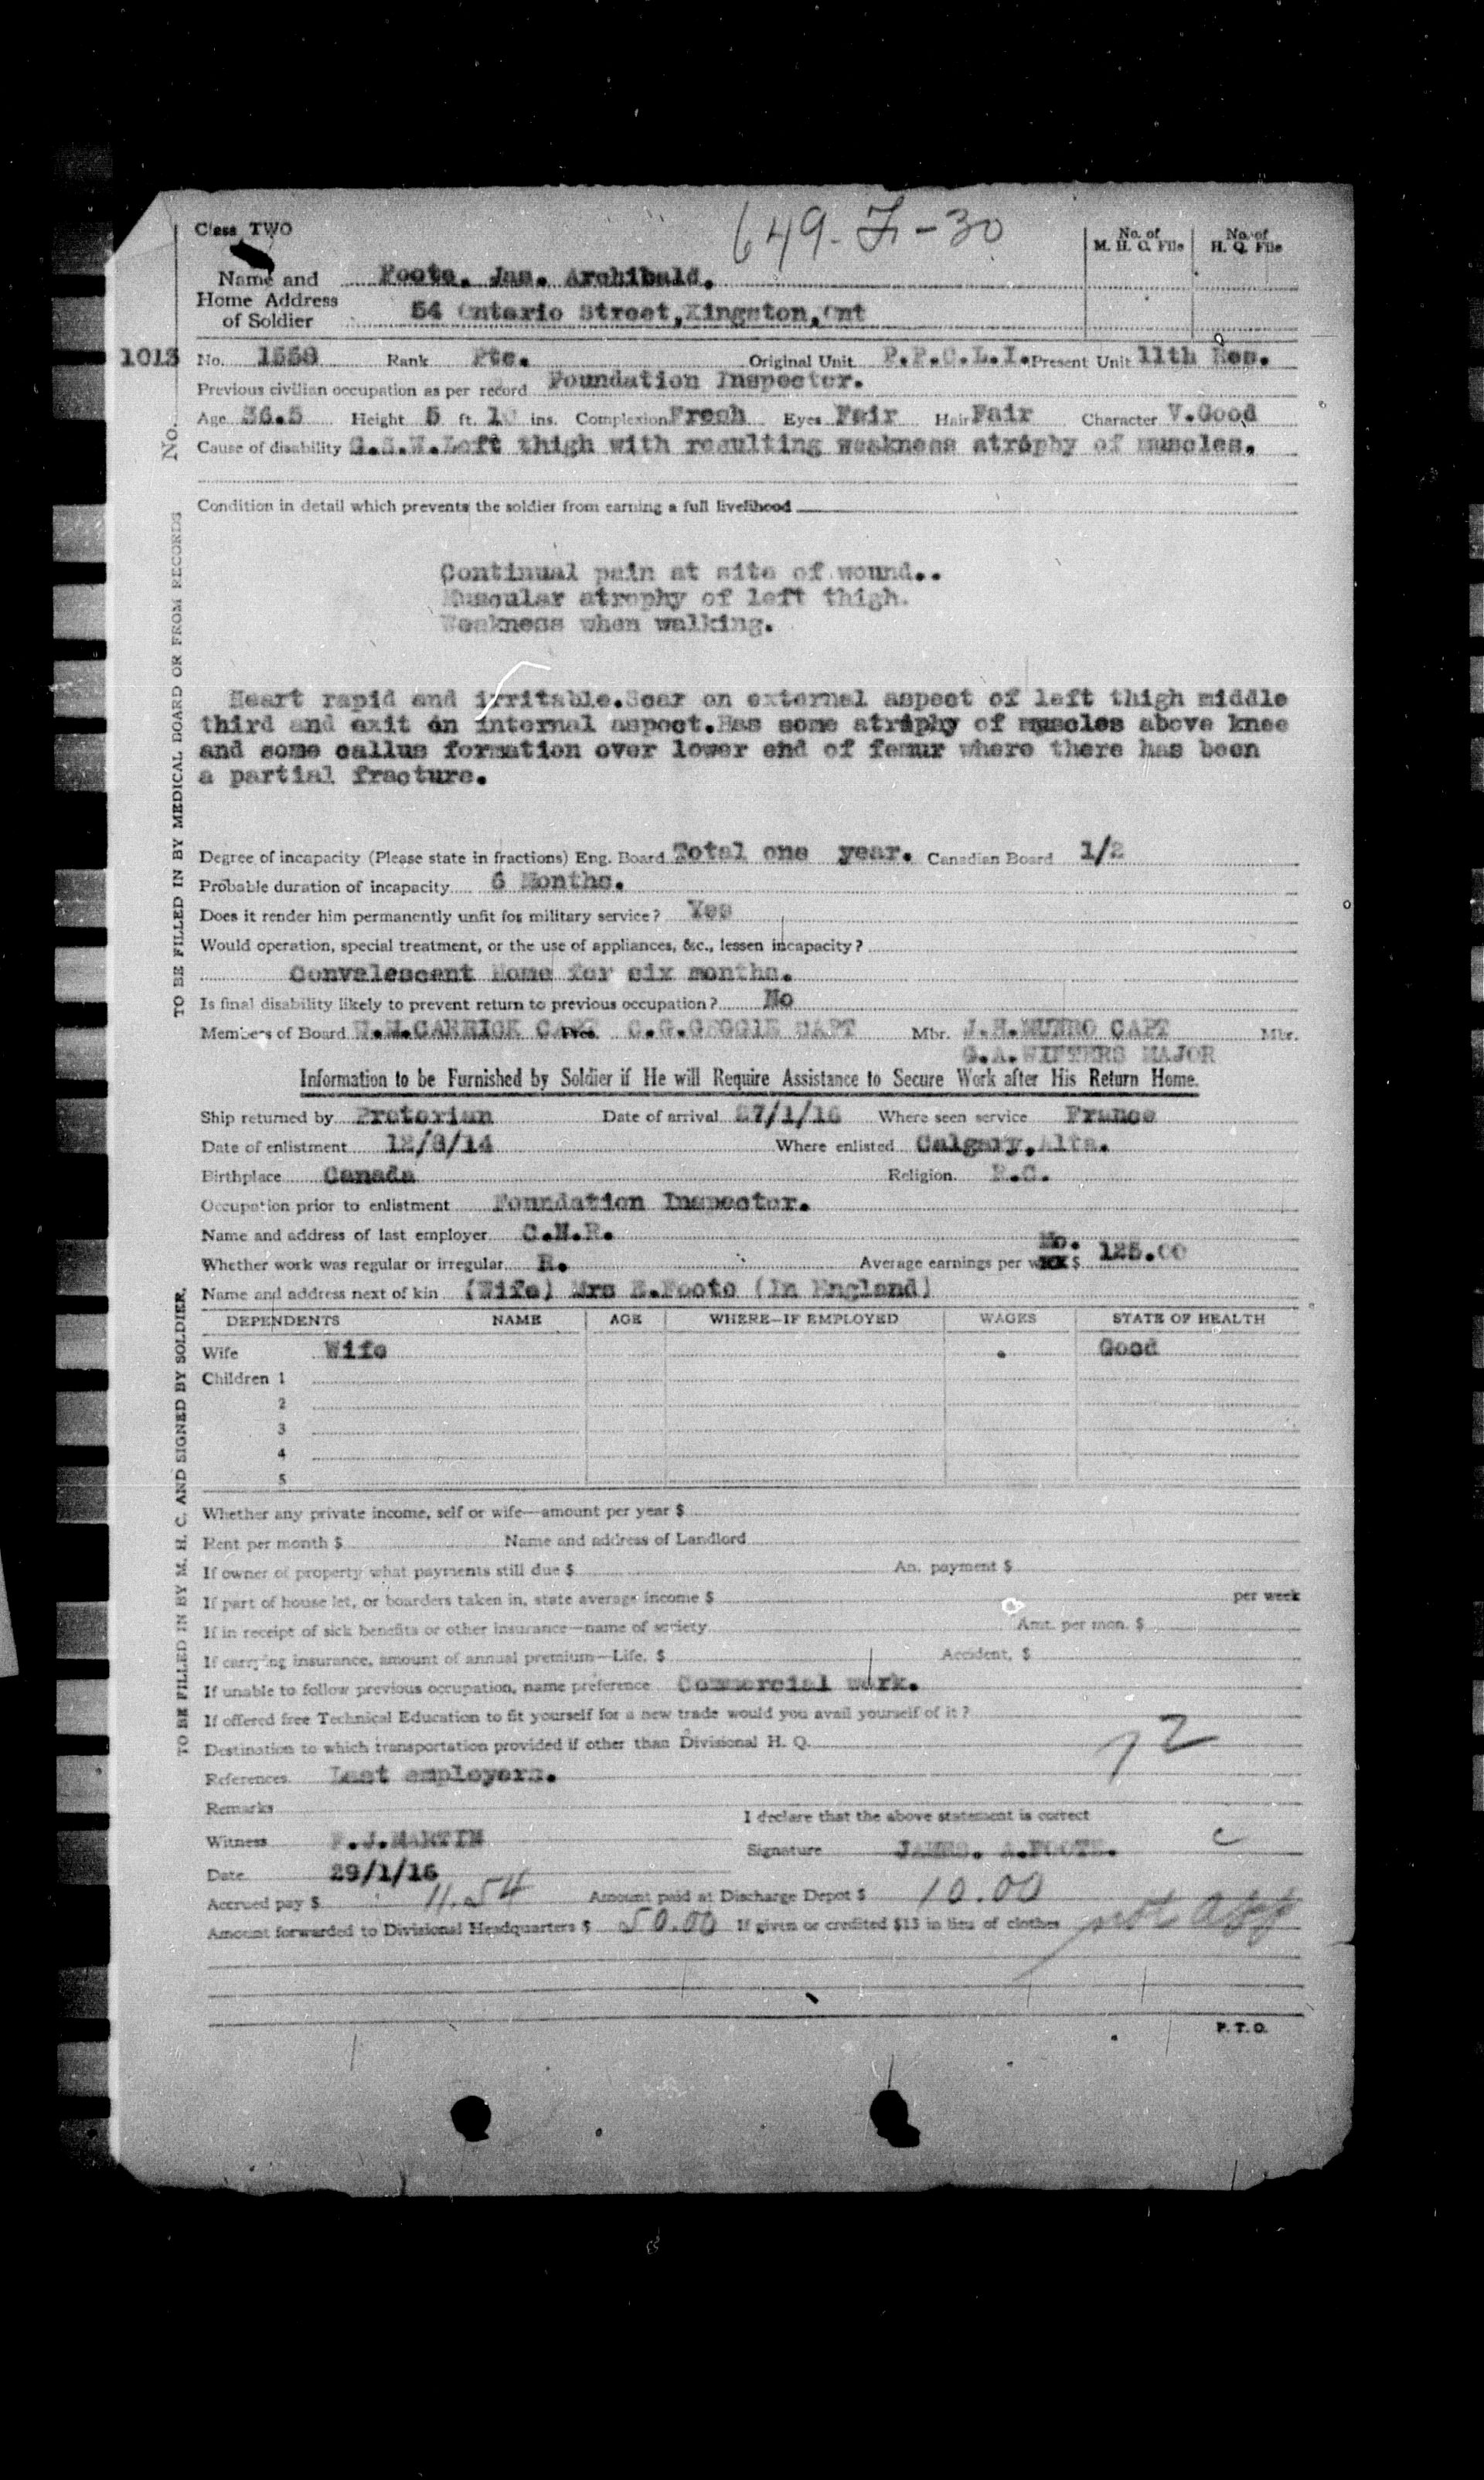 Class TWO
649-F-30
No. of M. H. C. File
No. of H. Q. File
Name and Home Address of Soldier
Foote. Jas. Archibald.
54 Ontario Street, Kingston, Ont
1013 No. Rank Pte. Original Unit P.P.C.L.I. Present Unit 11th Res.
Previous civilian occupation as per record Foundation Inspector.
Age 36.5 Height 5 ft. 10 ins. Complexion Fresh Eyes Fair Hair Fair Character V.Good
Cause of disability G.S.W. Left thigh with resulting weakness atrophy of muscles.
Condition in detail which prevents the soldier from earning a full livelihood
Continual pain at site of wound..
Muscular atrophy of left thigh.
Weakness when walking.
Heart rapid and irritable. Scar on external aspect of left thigh middle
third and exit on internal aspect. Has some atrophy of muscles above knee
and some callus formation over lower end of femur where there has been
a partial fracture.
Degree of incapacity (Please state in fractions) Eng. Board Total one year. Canadian Board 1/2
Probable duration of incapacity 6 Months.
Does it render him permanently unfit for military service? Yes
Would operation, special treatment, or the use of appliances, &c., lessen incapacity?
Convalescent Home for six months.
Is final disability likely to prevent return to previous occupation? No
Members of Board CARRICK CAPT Pres. C.G.GEGGIE CAPT Mbr. J.H.MUNRO CAPT Mbr.
G.A.WINTERS MAJOR
Information to be Furnished by Soldier if He will Require Assistance to Secure Work after His Return Home.
Ship returned by Pretorian Date of arrival 27/1/16 Where seen service France
Date of enlistment 12/8/14 Where enlisted Calgary, Alta.
Birthplace Canada Religion R.C.
Occupation prior to enlistment Foundation Inspector.
Name and address of last employer C.N.R.
Whether work was regular or irregular R. Average earnings per Mo. $ 125.00
Name and address next of kin (Wife) Mrs E.Foote (In England)
DEPENDENTS NAME AGE WHERE—IF EMPLOYED WAGES STATE OF HEALTH
Wife Wife Good
Children 1
2
3
4
5
Whether any private income, self or wife—amount per year $
Rent per month $ Name and address of Landlord
If owner of property what payments still due $ An. payment $
If part of house let, or boarders taken in, state average income $ per week
If in receipt of sick benefits or other insurance—name of society Amt. per mon. $
If carrying insurance, amount of annual premium—Life, $ Accident, $
If unable to follow previous occupation, name preference Commercial work.
If offered free Technical Education to fit yourself for a new trade would you avail yourself of it?
Destination to which transportation provided if other than Divisional H. Q.
References Last employers.
Remarks I declare that the above statement is correct
Witness F.J.MARTIN Signature JAMES. A.FOOTE.
Date 29/1/16
Accrued pay $ 11.54 Amount paid at Discharge Depot $ 10.00
Amount forwarded to Divisional Headquarters $ 50.00 If given or credited $13 in lieu of clothes
P. T. O.
No.
TO BE FILLED IN BY MEDICAL BOARD OR FROM RECORDS
TO BE FILLED IN BY M. H. C. AND SIGNED BY SOLDIER.